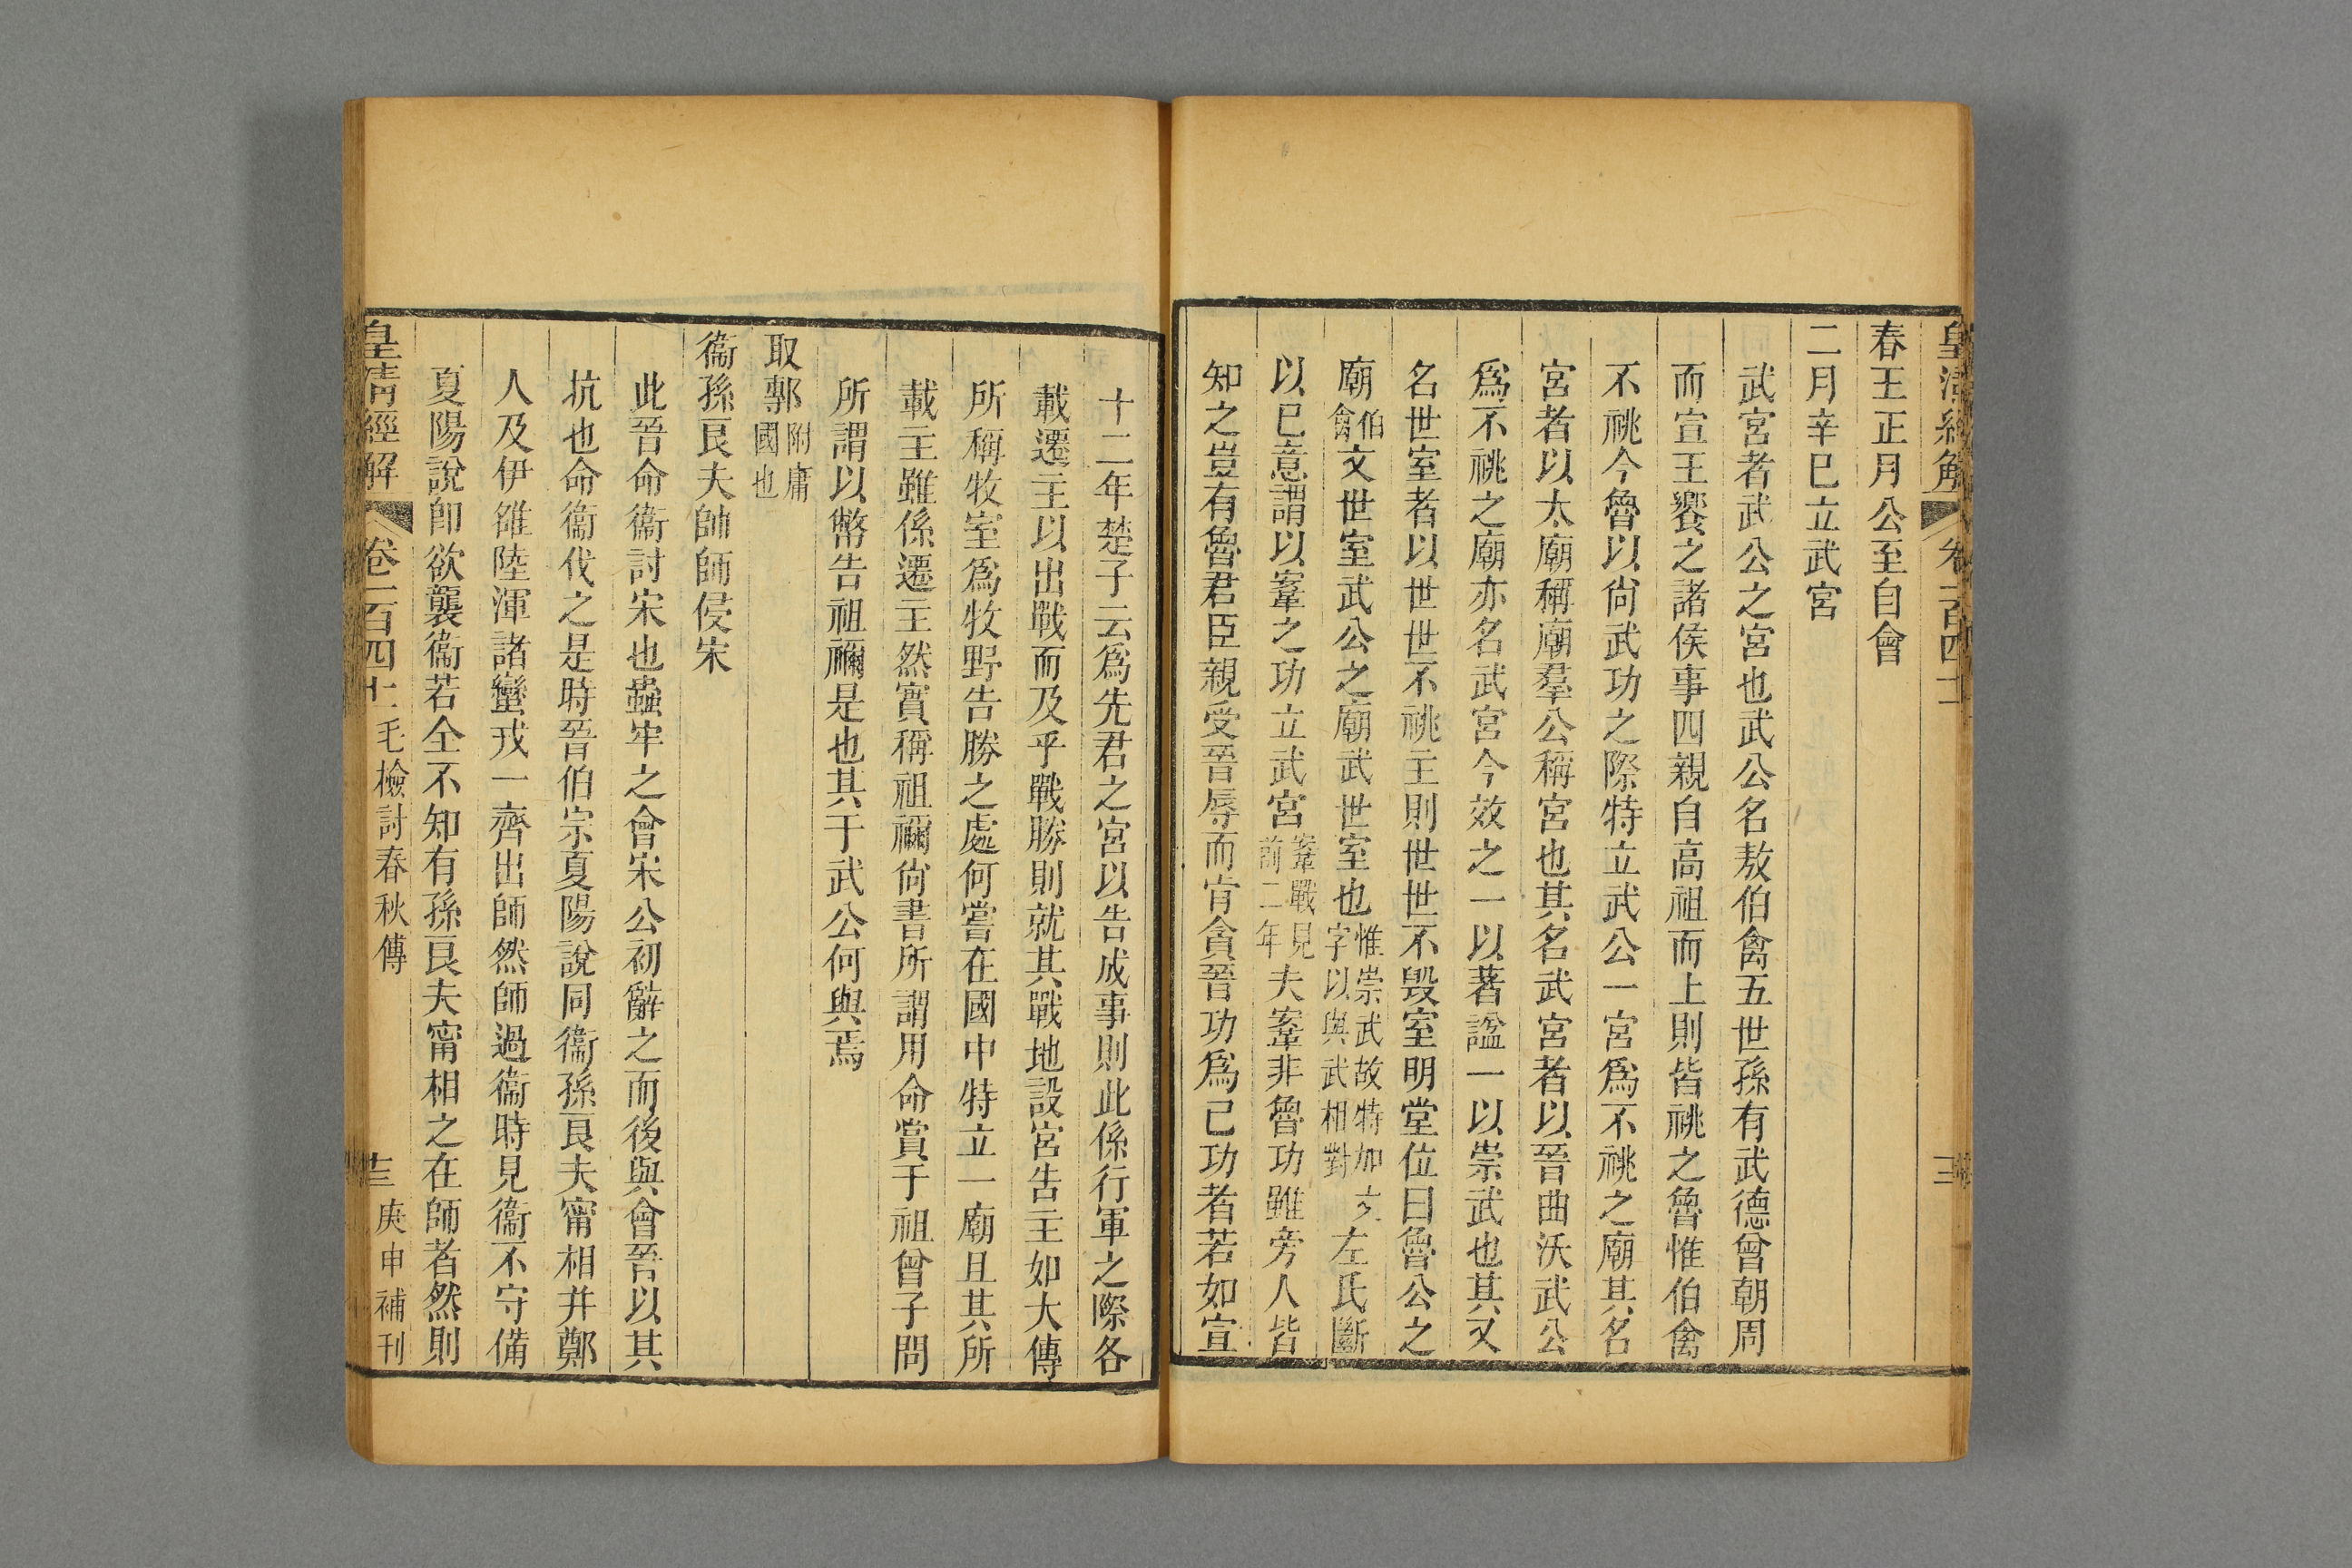 皇清經解 卷一百四十
春王正月公至自會
二月辛巳立武宮
武宮者武公之宮也武公名敖伯禽五世孫有武德曾朝周
而宣王饗之諸侯事四親自高祖而上則皆祧之魯惟伯禽
不祧今魯以尙武功之際特立武公一宮爲不祧之廟其名
宮者以太廟稱廟羣公稱宮也其名武宮者以晉曲沃武公
爲不祧之廟亦名武宮今效之一以著諡一以崇武也其又
名世室者以世世不祧主則世世不毀室明堂位曰魯公之
廟伯禽文世室武公之廟武世室也惟崇武故特加文字以與武相對左氏斷
以已意謂以鞌之功立武宮鞌戰見前二年夫鞌非魯功雖旁人皆
知之豈有魯君臣親受晉辱而肯貪晉功爲已功者若如宣
十二年楚子云爲先君之宮以告成事則此係行軍之際各
載遷主以出戰而及乎戰勝則就其戰地設宮告主如大傳
所稱牧室爲牧野告勝之處何嘗在國中特立一廟且其所
載主雖係遷主然實稱祖禰尙書所謂用命賞于祖曾子問
所謂以幣告祖禰是也其于武公何與焉
取鄟附庸國也
衞孫良夫帥師侵宋
此晉命衞討宋也蟲牢之會宋公初辭之而後與會晉以其
抗也命衞伐之是時晉伯宗夏陽說同衞孫良夫甯相幷鄭
人及伊雒陸渾諸蠻戎一齊出師然師過衞時見衞不守備
夏陽說卽欲襲衞若全不知有孫良夫甯相之在師者然則
皇清經解 卷一百四十 毛檢討春秋傳 三 庚申補刊